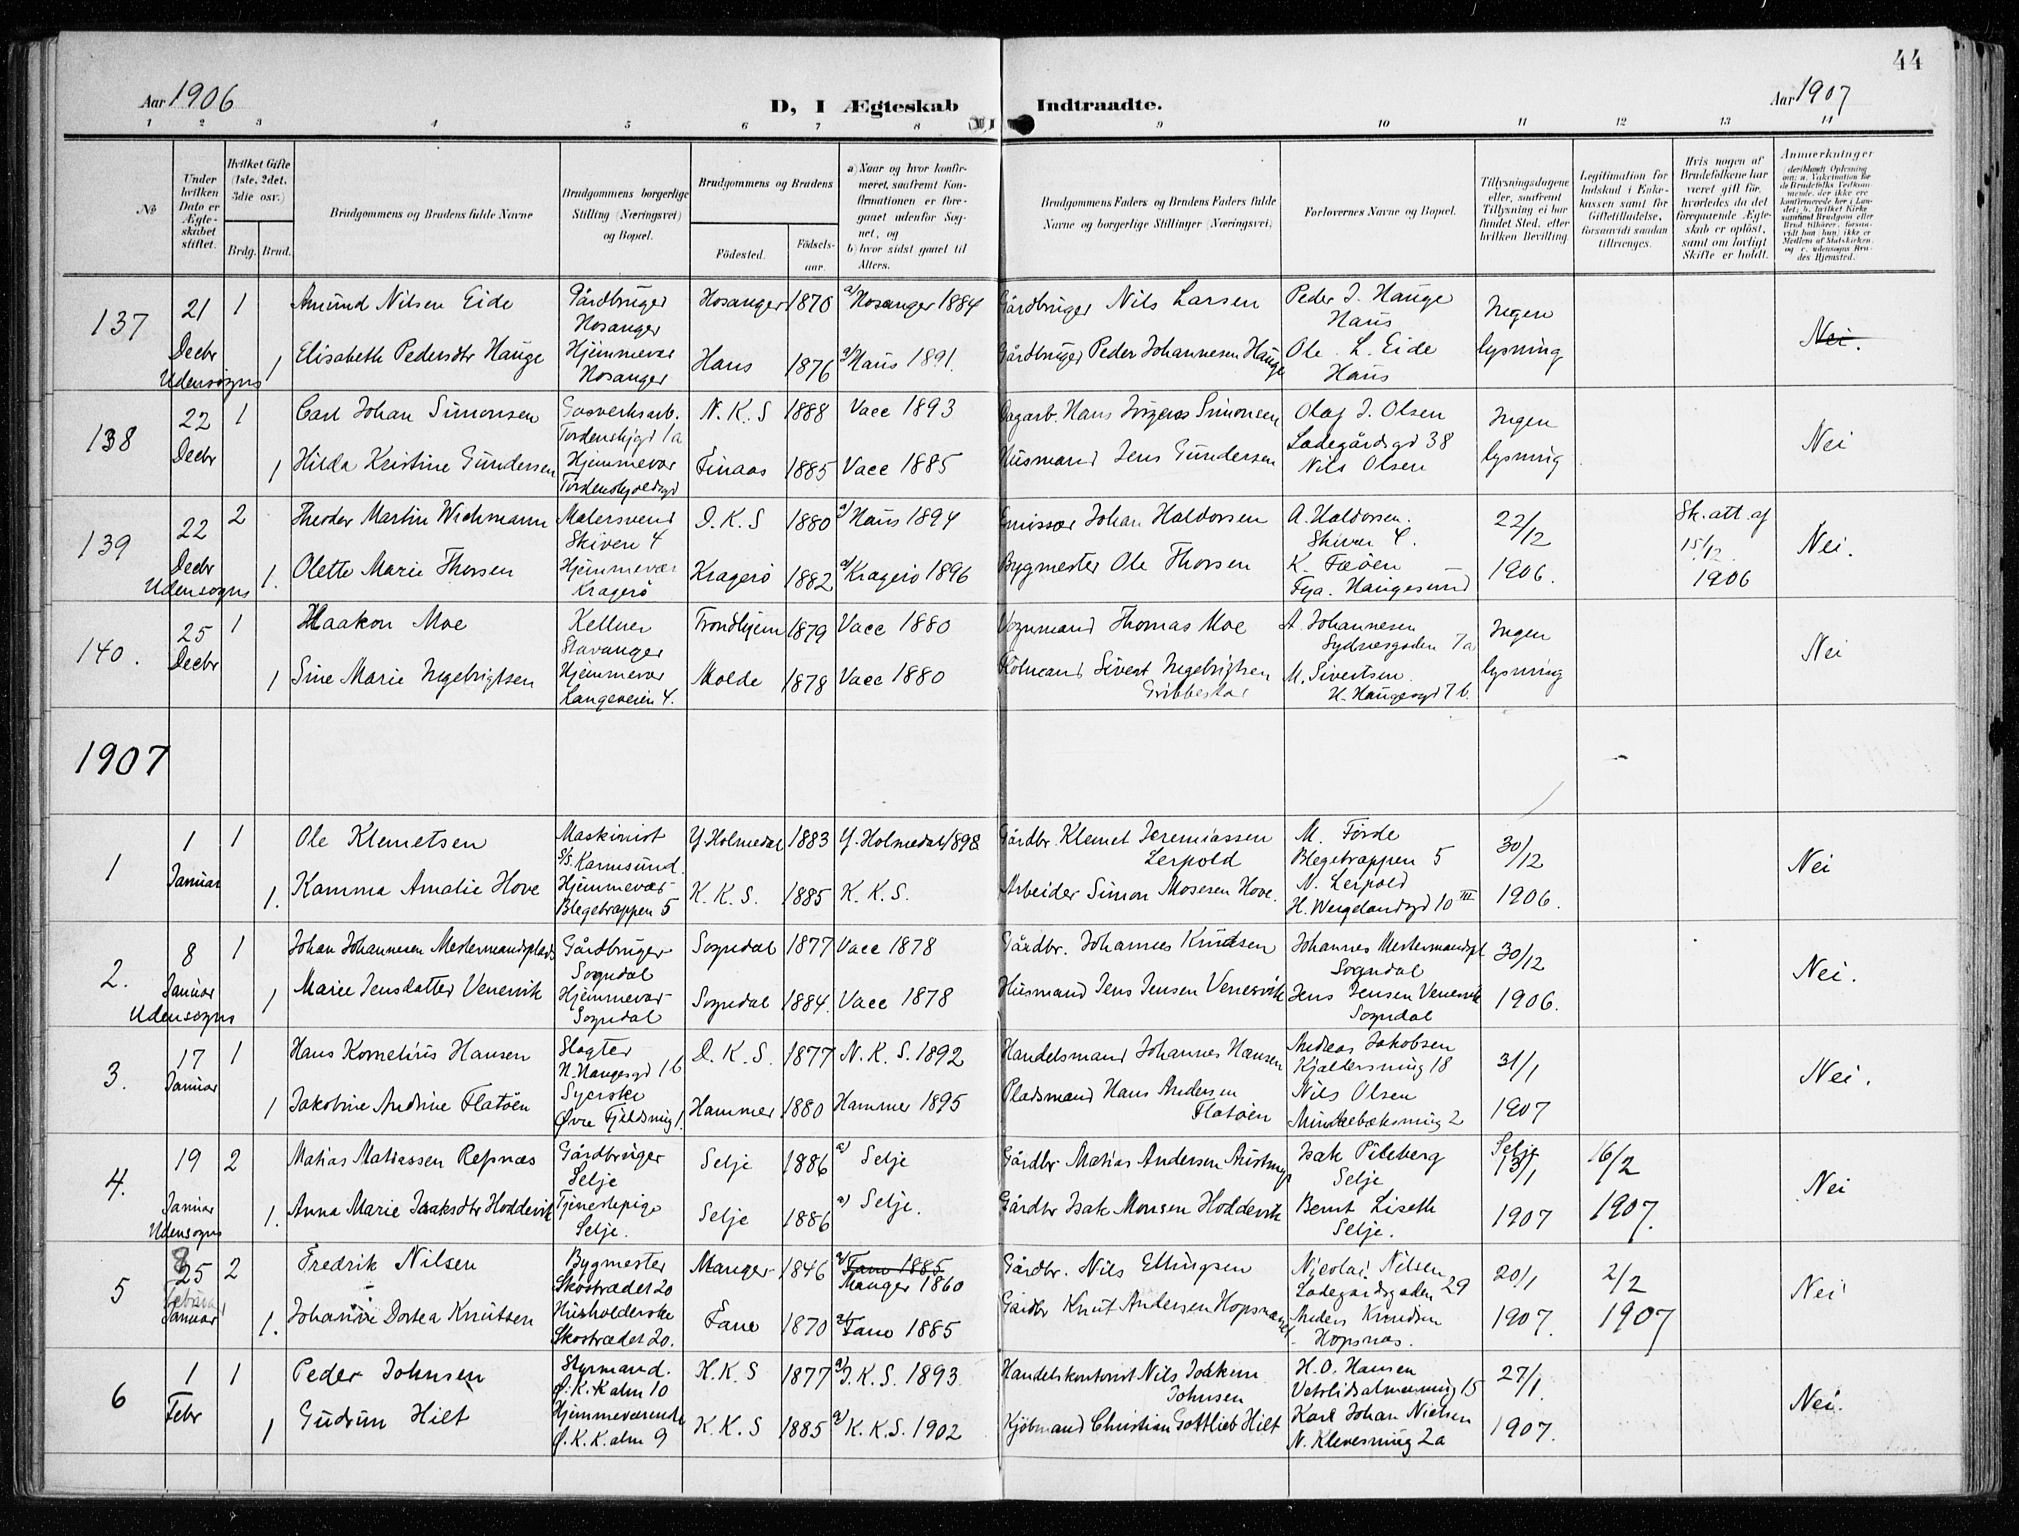 44
Aar 1906
D, I Ægteskab Indtraadte.
Aar 1907
1 2 3 4 5 6 7 8 9 10 11 12 13 14
No
Under hvilken Dato er Ægteskabet stiftet.
Hvilket Gifte (1ste, 2det, 3die osv.)
Brdg. Brud.
Brudgommens og Brudens fulde Navne
Brudgommens borgerlige Stilling (Næringsvei) og Bopæl.
Brudgommens og Brudens
Fødested. Fødselsaar.
a) Naar og hvor konfirmeret, saafremt Konfirmationen er foregaaet udenfor Sognet, og
b) hvor sidst gaaet til Alters.
Brudgommens Faders og Brudens Faders fulde Navne og borgerlige Stillinger (Næringsvei)
Forlovernes Navne og Bopæl.
Tillysningsdagene eller, saafremt Tillysning ei har fundet Sted, efter hvilken Bevilling.
Legitimation for Indskud i Enkekassen samt for Giftetilladelse, forsaavidt saadan tiltrænges.
Hvis nogen af Brudefolkene har været gift før, hvorledes da det foregaaende Ægteskab er opløst, samt om lovligt Skifte er holdt.
Anmerkninger
137 21 1 Amund Nilsen Eide Gårdbruger Hosanger Hosanger 1870 a) Hosanger 1884 Gårdbruger Nils Larsen Peder J. Hauge Haus Ingen
Decbr Udensogns 1 Elisabeth Pedersdtr Hauge Hjemmevær Hosanger Haus 1876 a) Haus 1891. Gårdbruger Peder Johannesen Hauge Ole L. Eide Haus lysning Nei.
138 22 1 Carl Johan Simonsen Gasverksarb. Tordenskjgd 1a N. K. S 1888 Vacc 1893 Dagarb. Hans Jørgens Simonsen Olaf J. Olsen Ladegårdsgd 38 Ingen
Decbr 1 Hilda Kristine Gundersen Hjemmevær Tordenskjoldsgd Finaas 1885 Vacc 1885 Husmand Jens Gundersen Nils Olsen lysning Nei
139 22 2 Theodor Martin Wichmann Malersvend Skiven 4 D. K. S 1880 a) Haus 1894 Emissær Johan Haldorsen A. Haldorsen. Skiven 4. 22/12 Sk. att. af 15/12
Decbr Udensogns 1. Olette Marie Thorsen Hjemmevær Kragerø Kragerø 1882 a) Kragerø 1896 Bygmester Ole Thorsen K. Fæøen Fya. Haugesund 1906. 1906 Nei.
140. 25 1 Haakon Moe Kellner Stavanger Trondhjem 1879 Vacc 1880 Vognmand Thomas Moe A. Johannesen Sydnesgaden 7a Ingen
Decbr 1 Sine Marie Ingebrigtsen Hjemmevær Langeveien 4. Molde 1878 Vacc 1880 Sivert Ingebrigtsen M. Sivertsen. H. Haugesgd 7 b. lysning Nei
1907
1 1 1 Ole Klemetsen Maskinist S/S. Karmsund. Y. Holmedal 1883 Y. Holmedal 1898 Gårdbr. Klemet Jeremiassen Lerpold M. Førde Blegetrappen 5 30/12
Januar 1. Kamma Amalie Hove Hjemmevær Blegetrappen 5 K. K. S. 1885 K. K. S. Arbeider Simon Mosesen Hove. N. Lerpold H. Wergelandsgd 10 III 1906. Nei
2. 8 1 Johan Johannesen Mestermandsplads Gårdbruger Sogndal Sogndal 1877 Vacc 1878 Gårdbr. Johannes Knudsen Johannes Mestermandspl Sogndal 30/12
Januar Udensogns 1 Marie Jensdatter Venesvik Hjemmevær Sogndal Sogndal 1884. Vacc 1878 Husmand Jens Jensen Venesvik Jens Jensen Venesvik Sogndal 1906. Nei.
3. 17 1 Hans Kornelius Hansen Slagter H. Haugesgd 1 b D. K. S. 1877 N. K. S. 1892 Handelsmand Johannes Hansen Andreas Jakobsen Kjeldersmug 18 31/1
Januar 1 Jakobine Andrine Flatøen Syerske Øvre Fjeldsmug 1. Hammer 1880 Hammer 1895 Pladsmand Hans Andersen Flatøen Nils Olsen Mindebæksmug 2 1907 Nei.
4. 19 2 Matias Matiassen Refsnæs Gårdbruger Selje Selje 1886 a) Selje Gårdbr. Matias Andersen Isak Pileberg Selje Selje 13/1 16/2
Januar Udensogns 1. Anna Marie Isaksdtr Hoddevik Tjenestepige Selje. Selje 1886 a) Selje. Gårdbr Isak Monsen Hoddevik Bernt Liseth Selje. 1907 1907. Nei
5 8 25 2 Fredrik Nilsen Bygmester Skostrædet 20 Manger 1846 a) Fane 1885 Manger 1860 Gårdbr. Nils Ellingsen Nicolai Nilsen Ladegårdsgaden 29 20/1 2/2
Februar Januar 1. Johanne Dortea Knutsen Husholderske Skostrædet 20. Fane 1870 a) Fane 1885 Gårdbr Knut Andersen Hopsnæs Anders Knudsen Hopsnæs. 1907. 1907 Nei
6 1 1 Peder Johnsen Styrmand. Ø. K. Kalm 10 H. K. S 1877 a) J. K. S. 1893. Handelskontorist Nils Joakim Johnsen H. O. Hansen Vetrlidsalmenning 15 27/1.
Febr 1 Gudrun Hilt Hjemmeværende Ø. K. K. alm 9 K. K. S 1885 a) K. K. S. 1902 Kjøbmand Christian Gottlieb Hilt Karl Johan Nielsen N. Klevesmug 2a 1907. Nei.